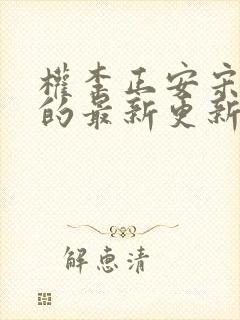 權李正安宋
的最新更新
解惠清